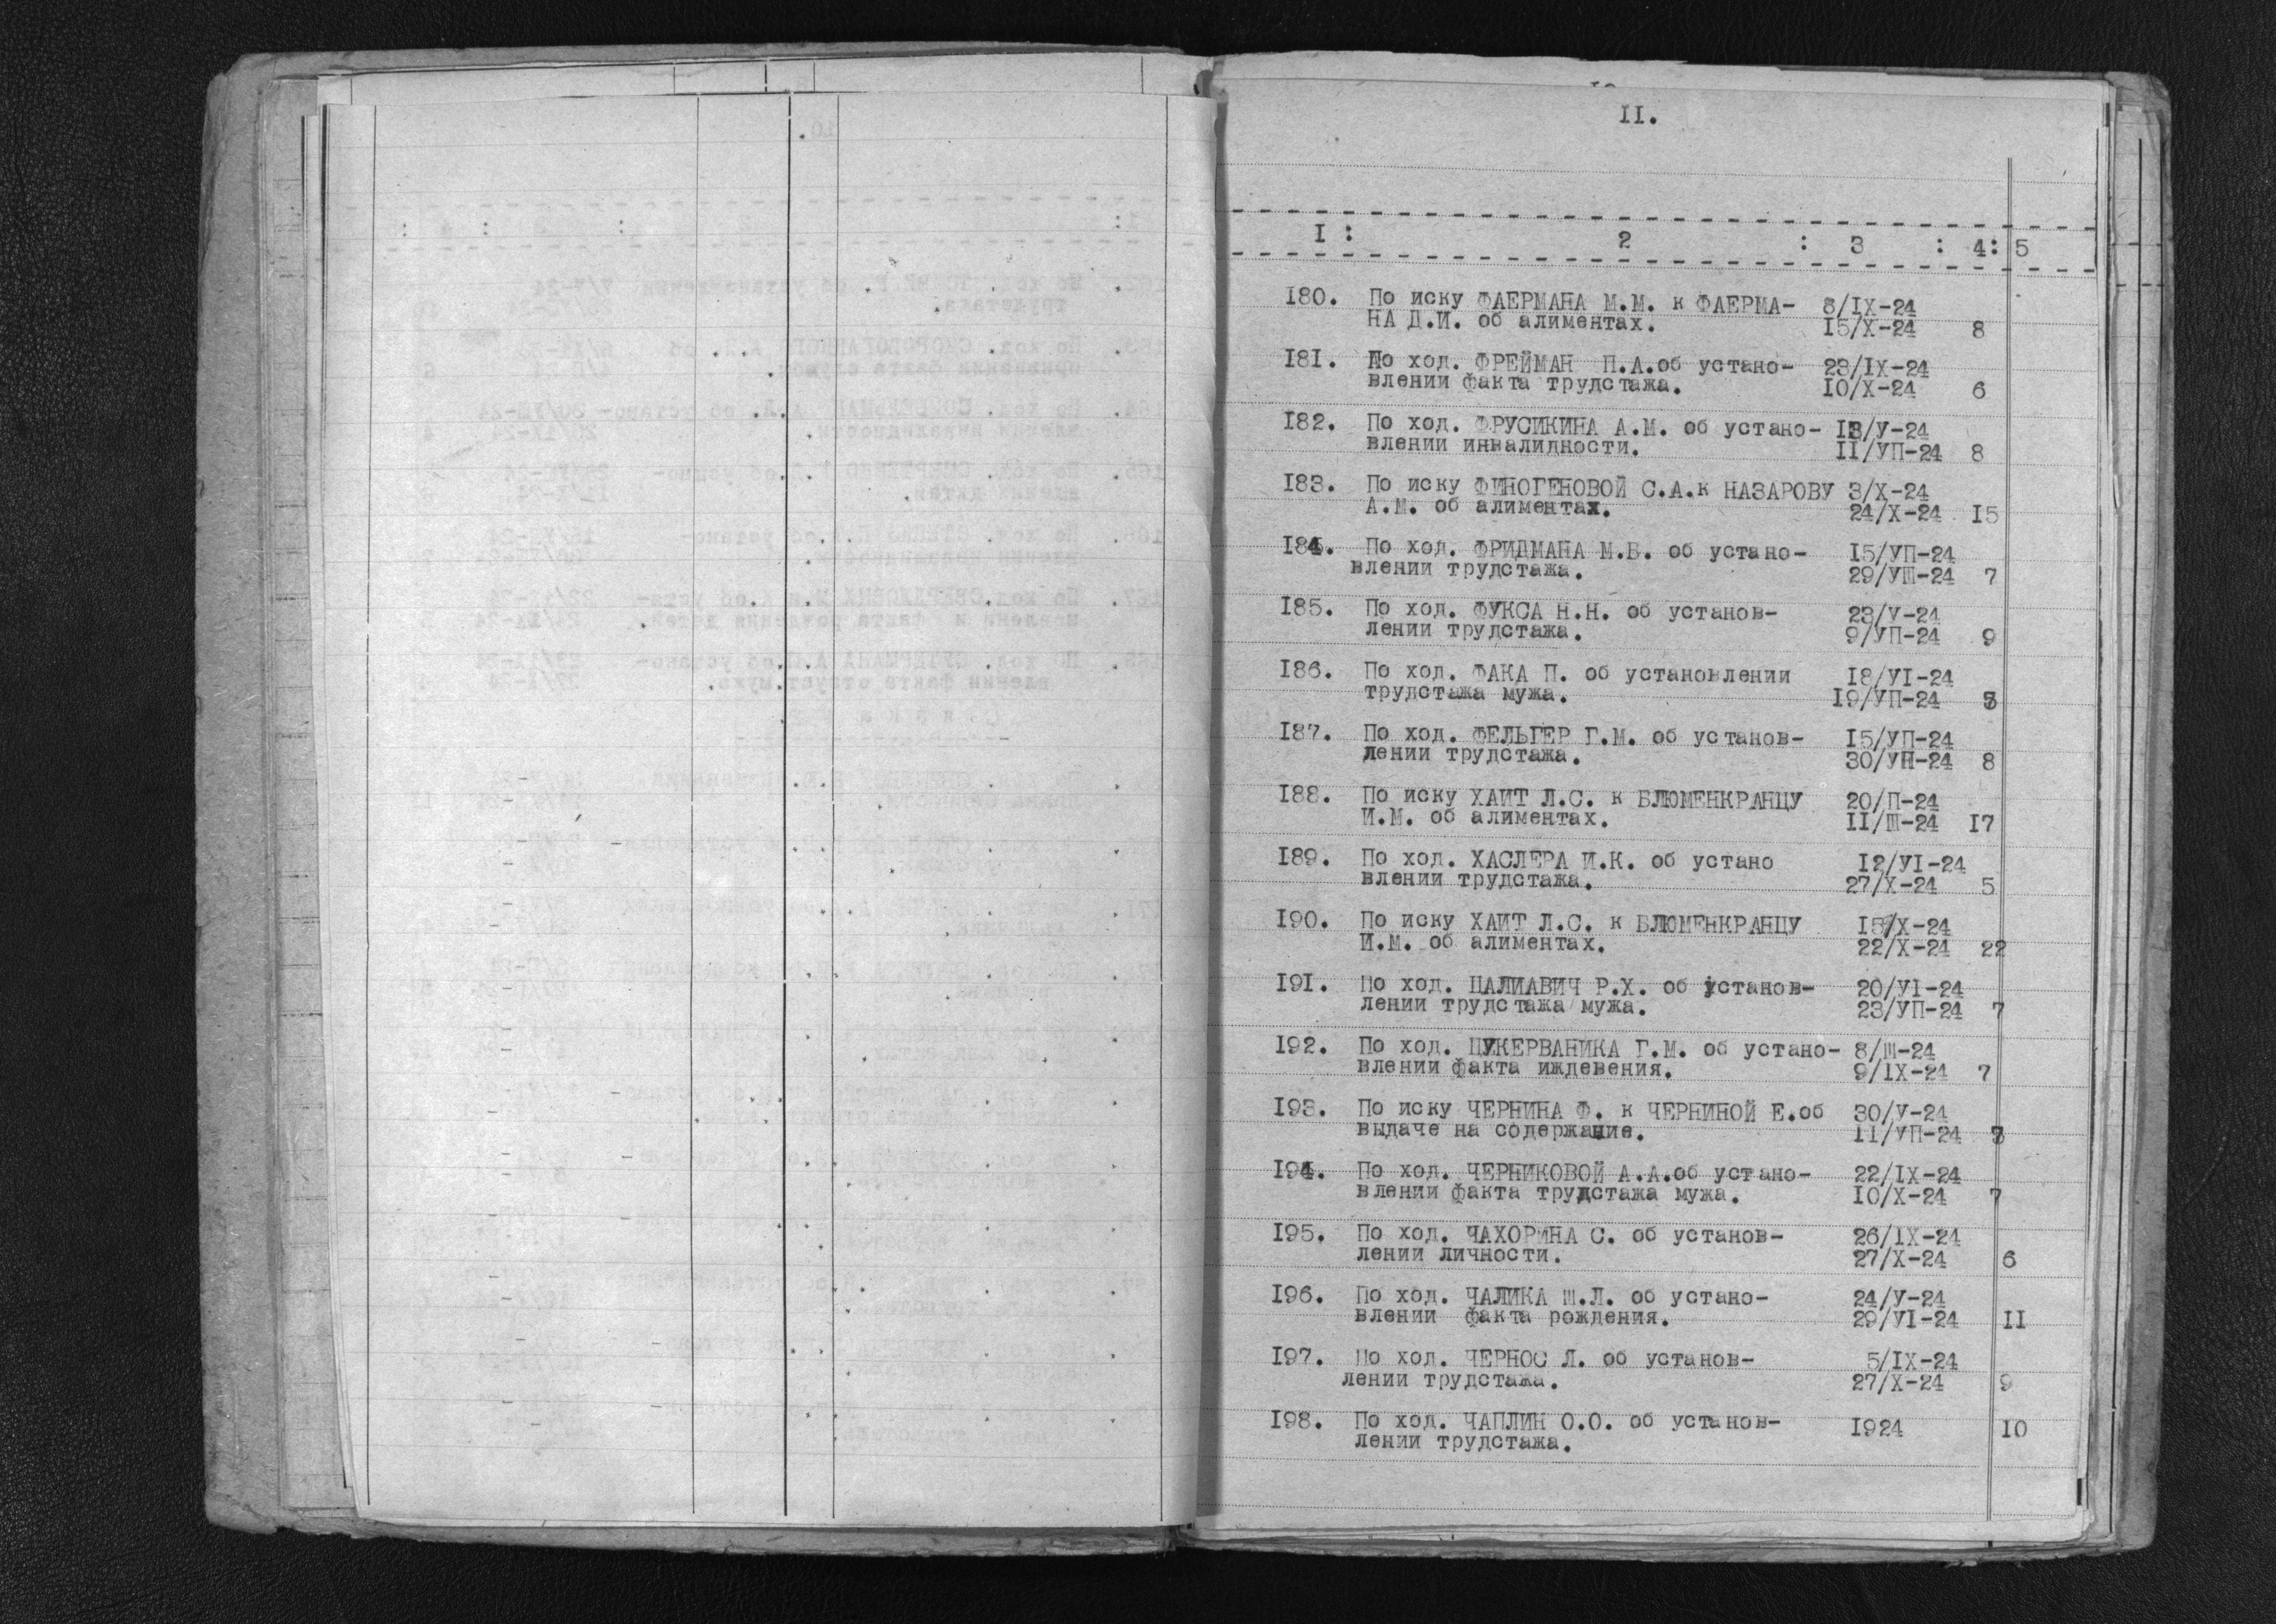 II.
I : 2 : 3 : 4: 5
I80. По иску ФАЕРМАНА М.М. к ФАЕРМА- 8/IX-24
НА Д.И. об алиментах. I5/X-24 8
I8I. По ход. ФРЕЙМАН П.А.об устано- 23/IX-24
влении факта трудстажа. IO/X-24 6
I82. По ход. ФРУСИКИНА А.М. об устано- I3/У-24
влении инвалидности. II/УП-24 8
I83. По иску ФИНОГЕНОВОЙ С.А.к НАЗАРОВУ 3/X-24
А.М. об алиментах. 24/X-24 I5
I84. По ход. ФРИДМАНА М.Б. об устано- I5/УП-24
влении трудстажа. 29/УШ-24 7
I85. По ход. ФУКСА Н.Н. об установ- 23/У-24
лении трудстажа. 9/УП-24 9
I86. По ход. ФАКА П. об установлении I8/УI-24
трудстажа мужа. I9/УП-24
I87. По ход. ФЕЛЬГЕР Г.М. об установ- I5/УП-24
лении трудстажа. 30/УП-24 8
I88. По иску ХАИТ Л.С. к БЛЮМЕНКРАНЦУ 20/П-24
И.М. об алиментах. II/Ш-24 I7
I89. По ход. ХАСЛЕРА И.К. об устано I2/УI-24
влении трудстажа. 27/X-24 5
I90. По иску ХАИТ Л.С. к БЛЮМЕНКРАНЦУ I5/X-24
И.М. об алиментах. 22/X-24 22
I9I. По ход. ЦАЛИАВИЧ Р.Х. об установ- 20/УI-24
лении трудстажа мужа. 23/УП-24 7
I92. По ход. ЦУКЕРВАНИКА Г.М. об устано- 8/Ш-24
влении факта иждевения. 9/IX-24 7
I93. По иску ЧЕРНИНА Ф. к ЧЕРНИНОЙ Е.об 30/У-24
выдаче на содержание. II/УП-24
I94. По ход. ЧЕРНИКОВОЙ А.А.об устано- 22/IX-24
влении факта трудстажа мужа. IO/X-24 7
I95. По ход. ЧАХОРИНА С. об установ- 26/IX-24
лении личности. 27/X-24 6
I96. По ход. ЧАЛИКА Ш.Л. об устано- 24/У-24
влении факта рождения. 29/УI-24 II
I97. По ход. ЧЕРНОС Л. об установ- 5/IX-24
лении трудстажа. 27/X-24 9
I98. По ход. ЧАПЛИН О.О. об установ- I924 IO
лении трудстажа.